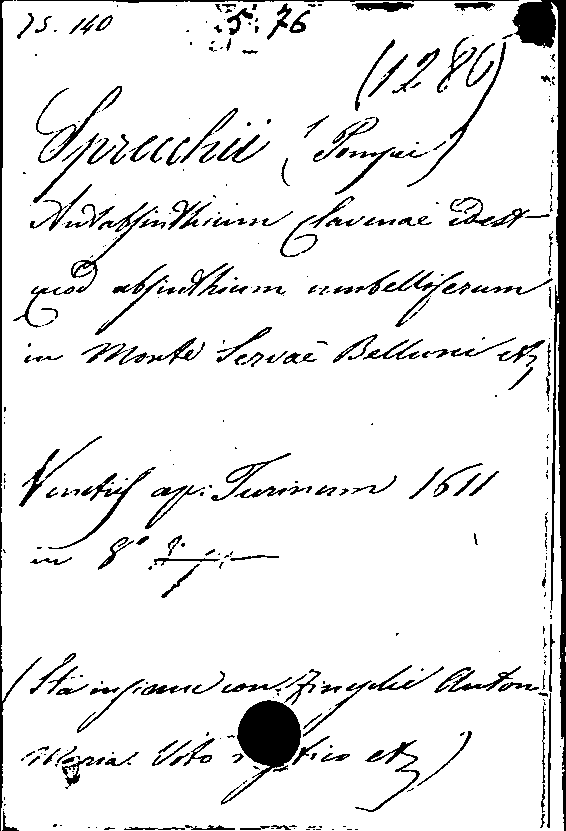 75. 140 5. 76
(1280)
Sprecchii (Pompei)
Antabsinthium Clavenae idest
quod absinthium umbelliferum
in Monte Servae Belluni etc
Venetiis ap: Turinum 1611
in 8°
(Stà insieme con: Anton
Maria. Voto etc)